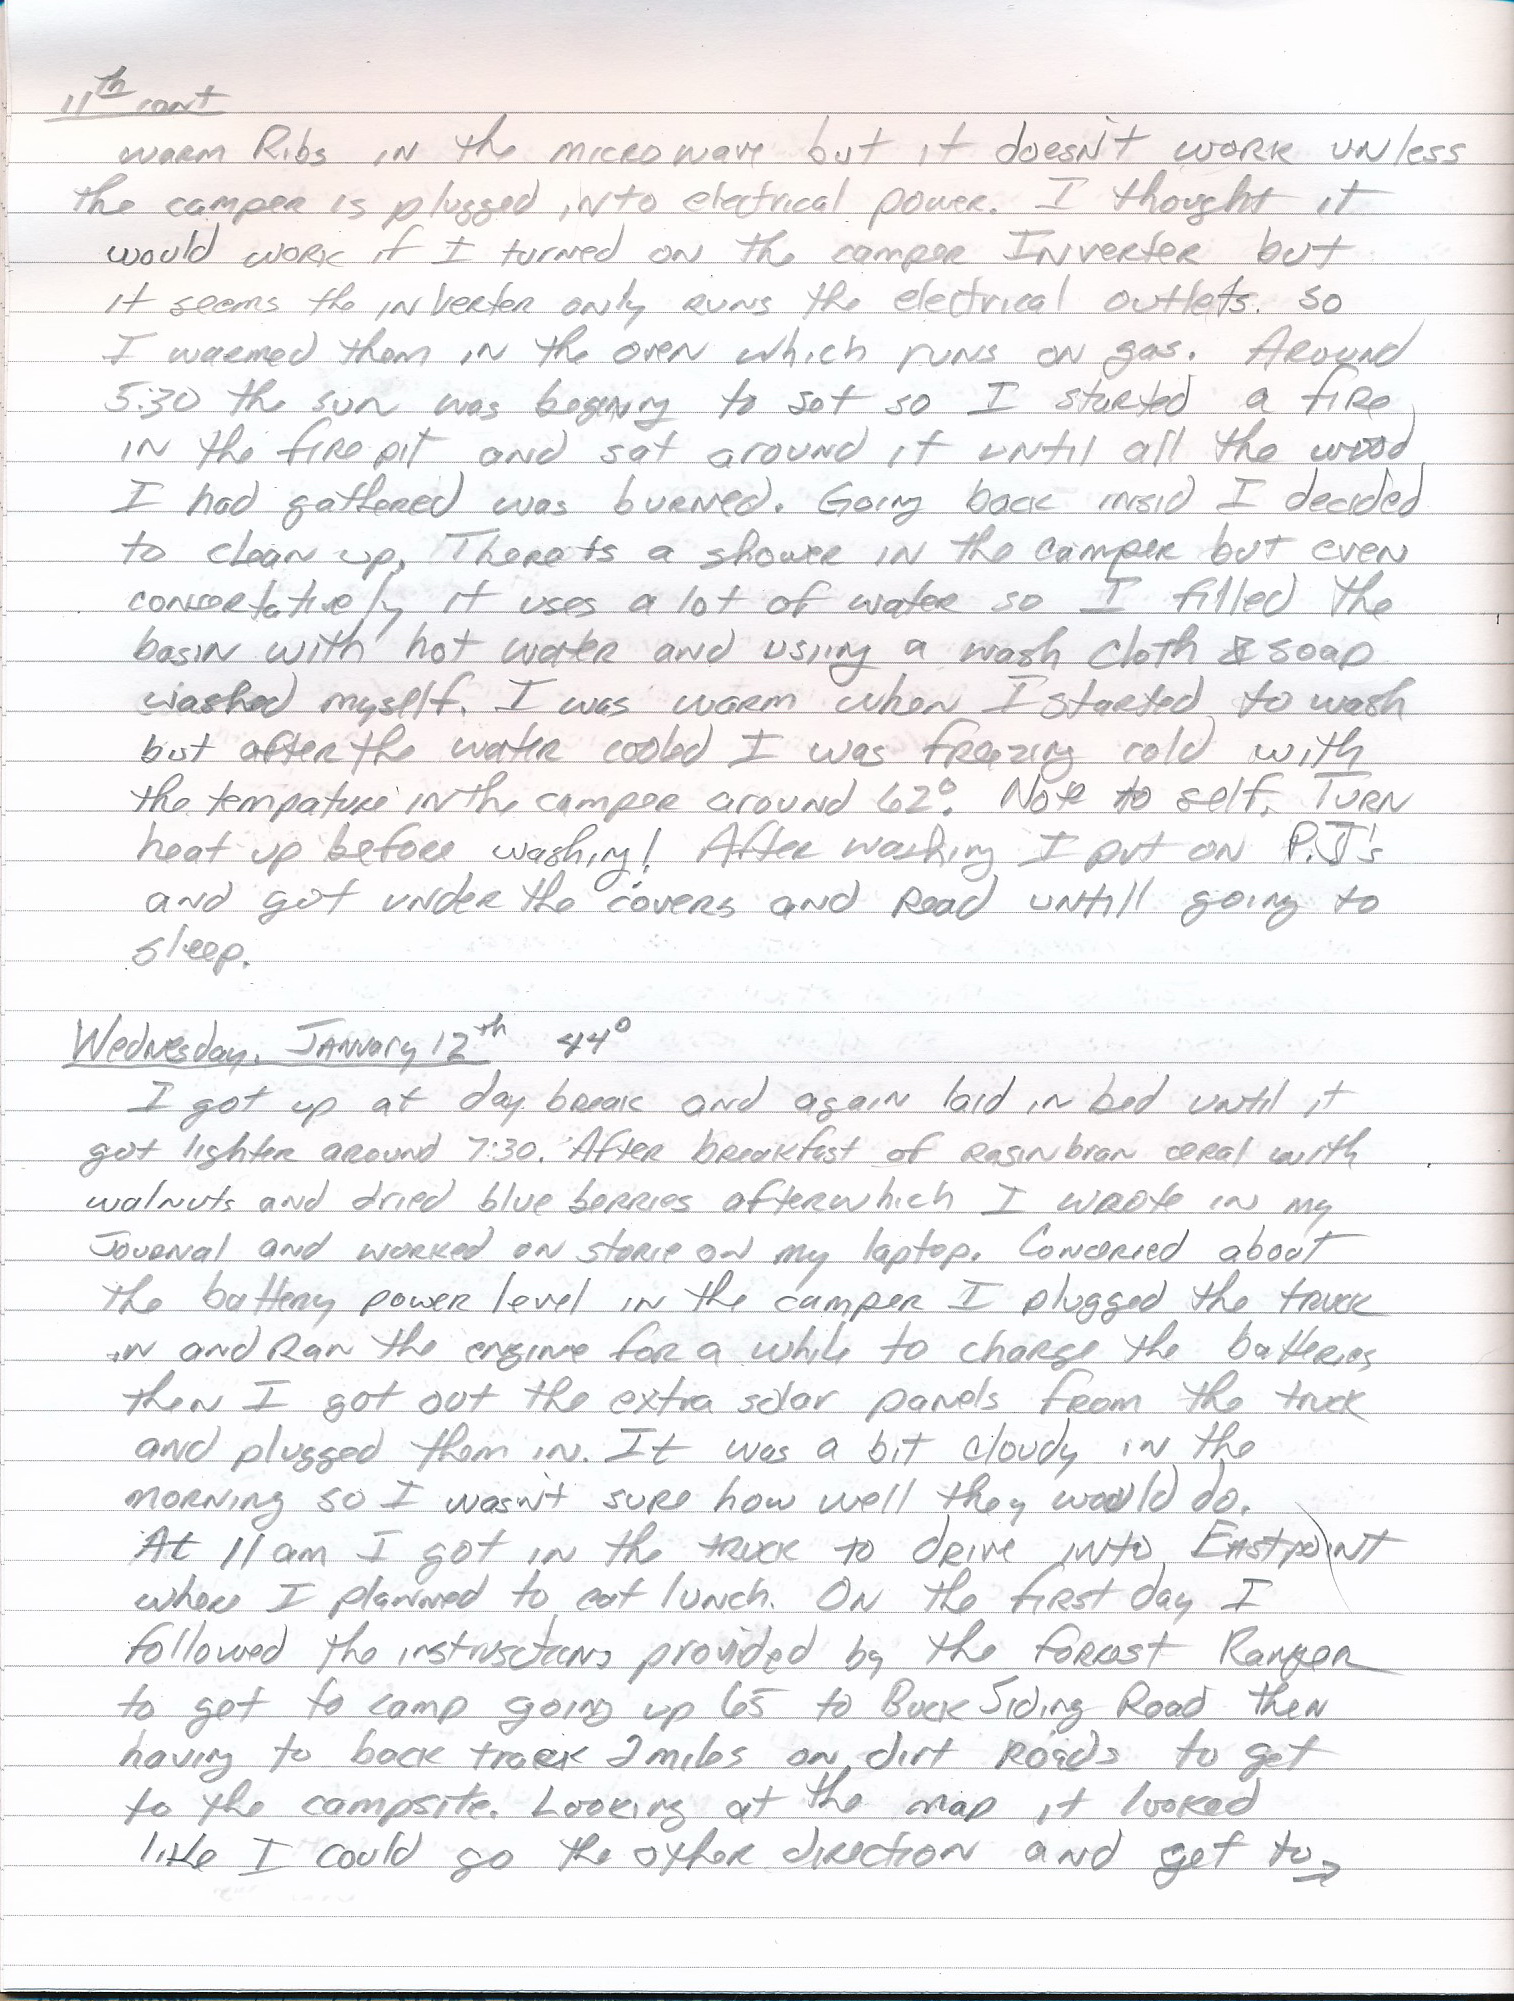 11th cont
warm Ribs in the microwave but it doesn't work unless
the camper is plugged into electrical power. I thought it
would work if I turned on the camper Inverter but
it seems the inverter only runs the electrical outlets. so
I warmed them in the oven which runs on gas. Around
5:30 the sun was begining to set so I started a fire
in the fire pit and sat around it until all the wood
I had gathered was burned. Going back insid I decided
to clean up. There is a shower in the camper but even
it uses a lot of water so I filled the
basin with hot water and using a wash cloth & soap
washed myself. I was warm when I started to wash
but after the water cooled I was freezing cold with
the tempature in the camper around 62°. Note to self. Turn
heat up before washing! After washing I put on P.J's
and got under the covers and Read untill going to
sleep.
Wednesday, January 12th 44°
I got up at day break and again laid in bed until it
got lighter around 7:30. After breakfast of rasinbran ceral with
walnuts and dried blue berries afterwhich I wrote in my
Journal and worked on storie on my laptop. Conceried about
the battery power level in the camper I plugged the truck
in and Ran the engine for a while to charge the batteries
then I got out the extra solar panels from the truck
and plugged them in. It was a bit cloudy in the
morning so I wasn't sure how well they would do.
At 11am I got in the truck to drive into Eastpoint
where I planned to eat lunch. On the first day I
followed the instructions provided by the Forrest Ranger
to get to camp going up 65 to Buck Siding Road then
having to back track 2 miles on dirt Roads to get
to the campsite. Looking at the map it looked
like I could go the other direction and get to→